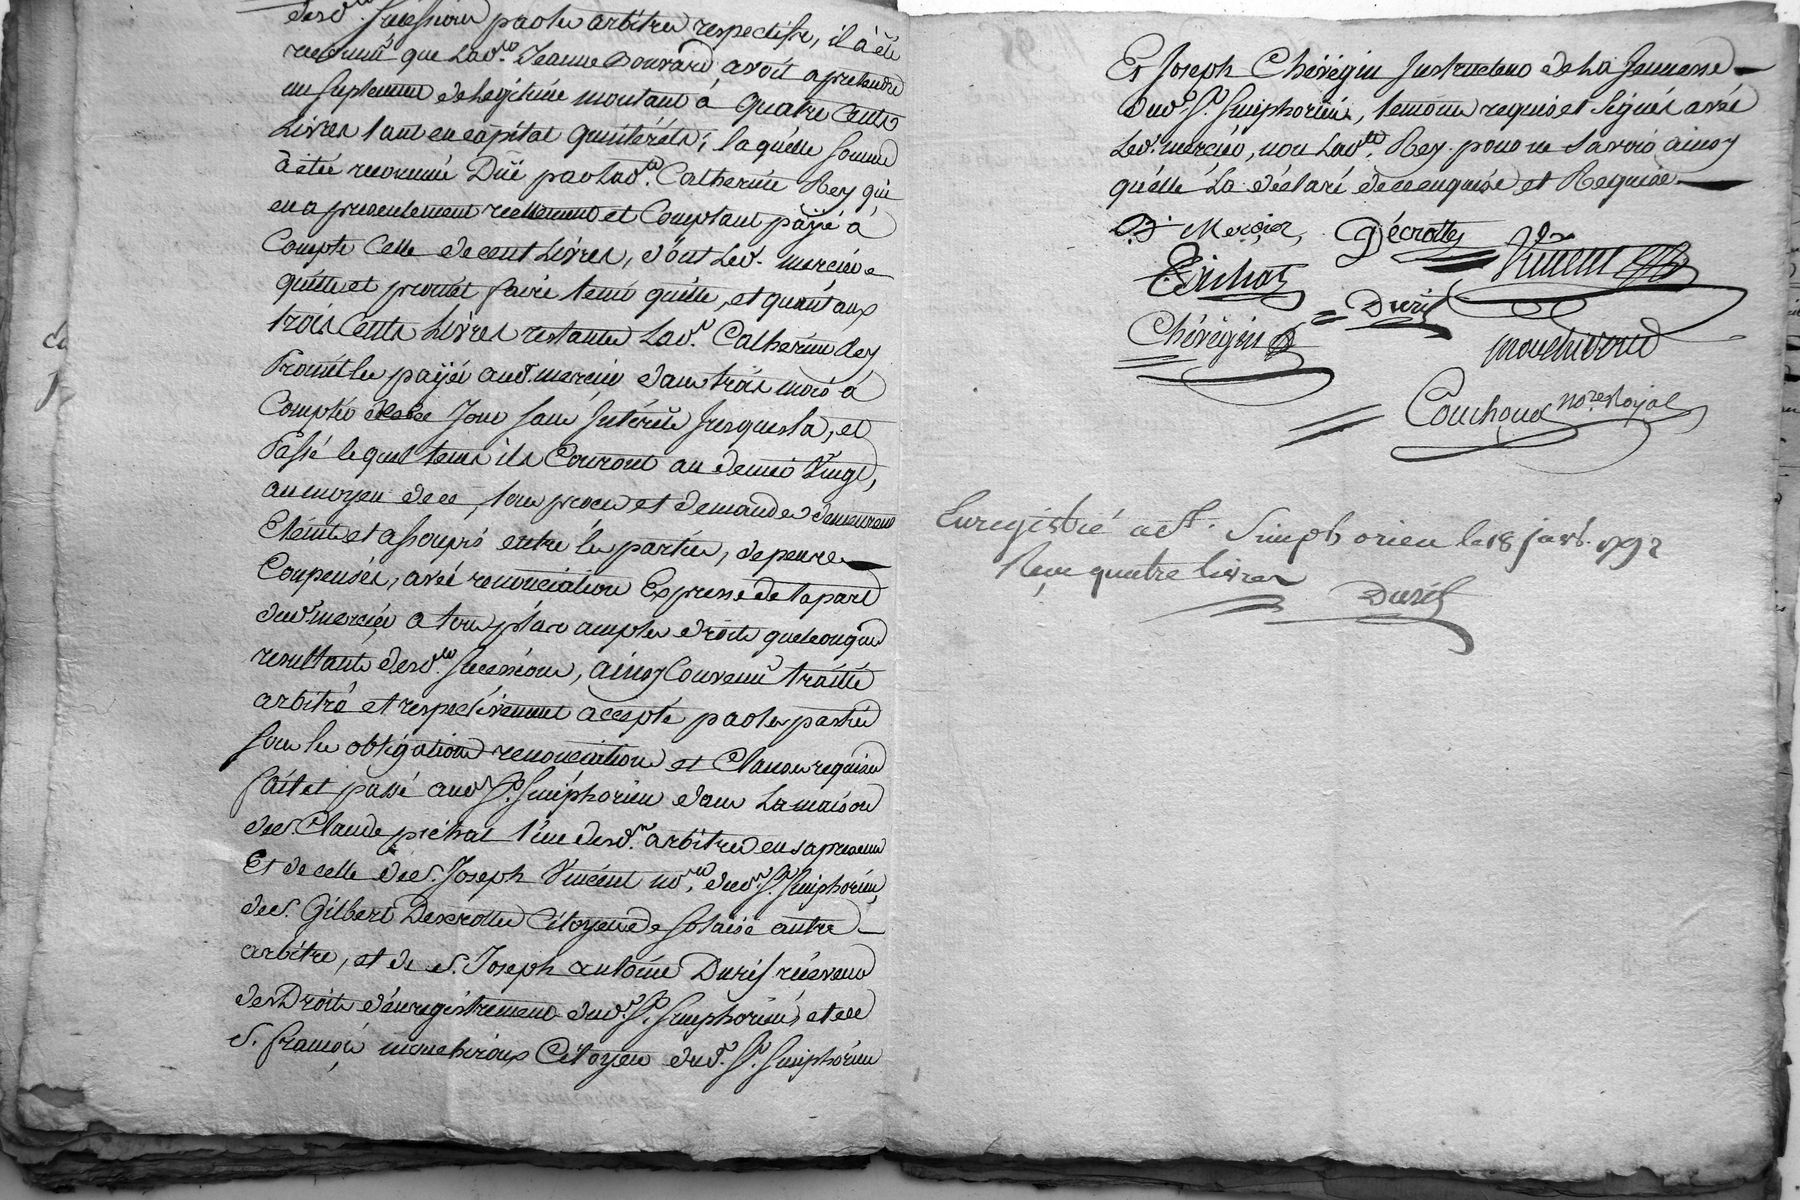 desd. succession par les arbitres respectifs, il a été
reconnu que lad.e Jeanne Bouvard avoit a pretendre
un suplement de legitime montant à quatre cents
Livres tant en capital qu'intérêts; laquelle somme
à été reconnue Dûë par lad.e Catherine Rey qui
en a presentement reellement et Comptant païjé à
Compte Celle de cent Livres, dont led. mercier
quitte et promet faire tenir quitte, et quant aux
trois Cents Livres restantes Lad.e Catherine Rey
Promet les païjer aud. mercier dans trois mois à
Compter de ce Jour sans Intérêts Jusques la, et
Passé lequel tems ils Couront au denier Vingt,
au moyen de ce, tous proces et demandes demeurent
Eteints et assoupis entre les parties, depens
Compensés, avec renonciation Expresse de la part
dud. mercier a tous plus amples droits quelconques
resultants desd.es successions, ainsy Convenu traitté
arbitré et respectivement accepté par les parties
sous les obligations renonciations et Clauses requises
fait et passé aud. St. Simphorien dans La maison
de s. Claude pichat l'un desd.s arbitres en sa presence
Et de celle de s. Joseph Vincent no.re dud. St. Simphorien,
de s. Gilbert Descrottes Citoyen de solaise autre
arbitre, et de s. Joseph antoine Durif réceveur
des Droits d'enregistrement dud. St. Simphorien, et de
s. françois mouchiroux Citoyen dud. St. Simphorien
Et Joseph Chérégin Instructeur de La Jeunesse
dud. St. Simphorien, temoins requis et signés avéc
Led. mercier, non Lad.te Rey pour ne savoir ainsy
qu'elle La déclaré de ce enquise et Requise
B. Mercier, Décrottes Vincent
Pichat Durif
Chérégin mouchiroud
Couchoud no.re Royal
Enregistré a St. Simphorien le 18 janv. 1792
Reçu quatre livres
Durif